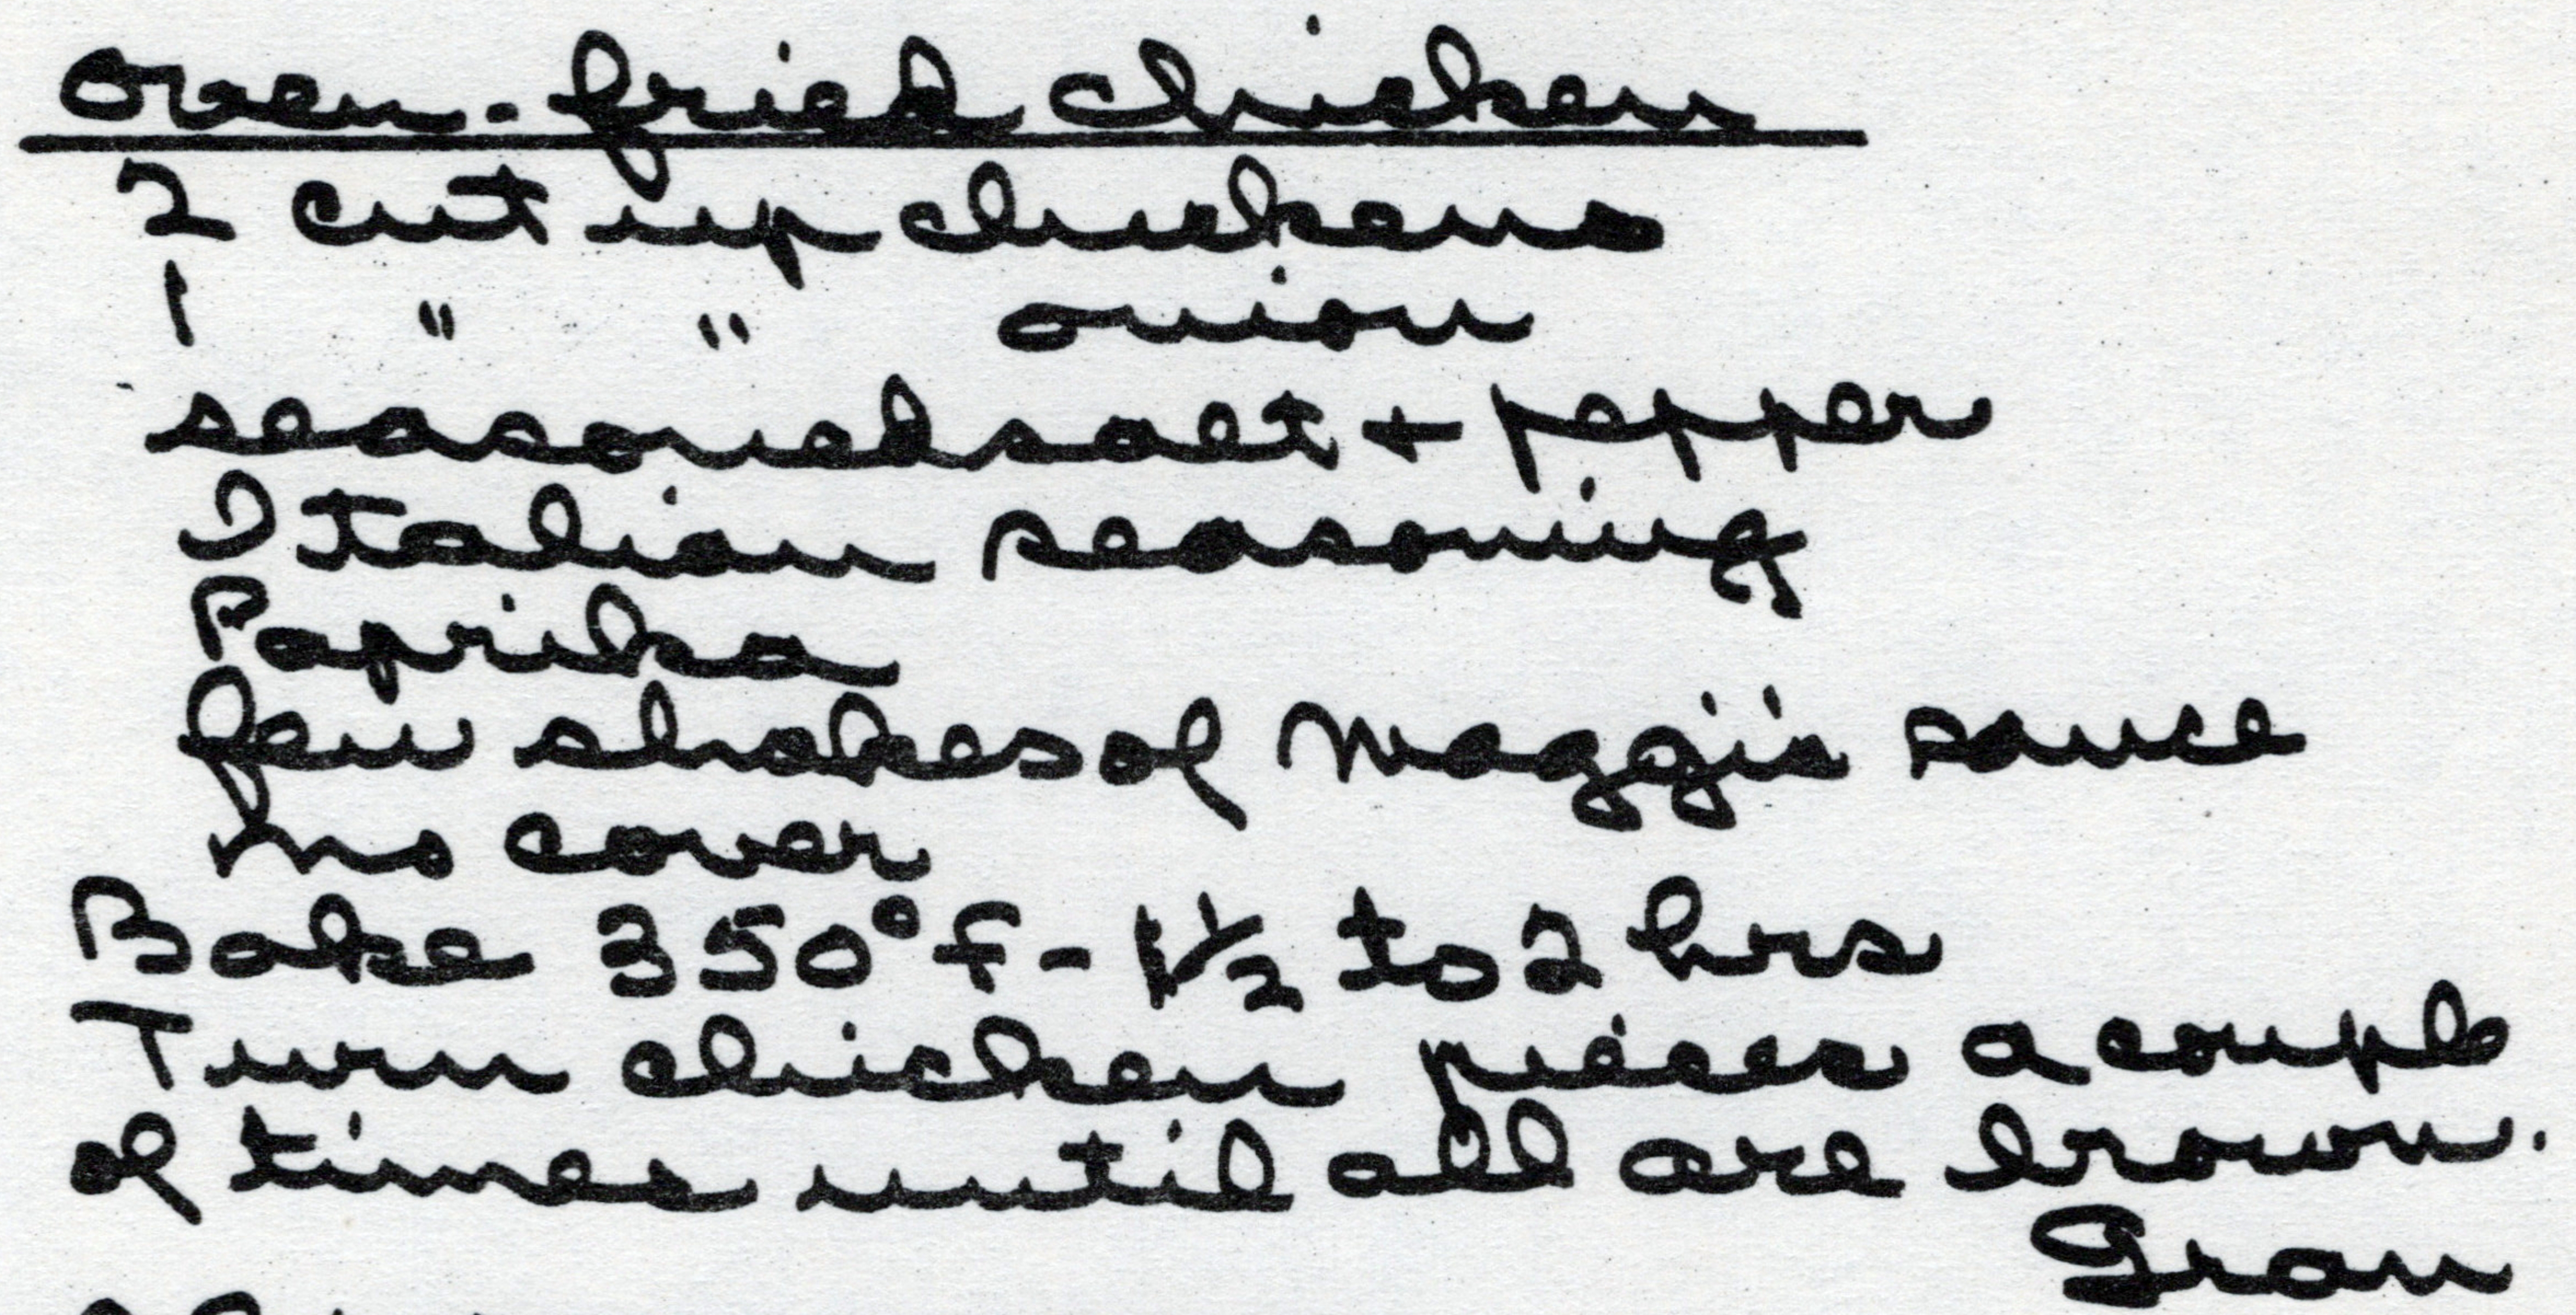 Oven-fried chicken
2 cut up chickens
1 " " onion
seasoned salt + pepper
Italian seasoning
Paprika
few shakes of Maggi's sauce
no cover
Bake 350°F - 1 1/2 to 2 hrs
Turn chicken pieces a couple
of times until all are brown.
Gran